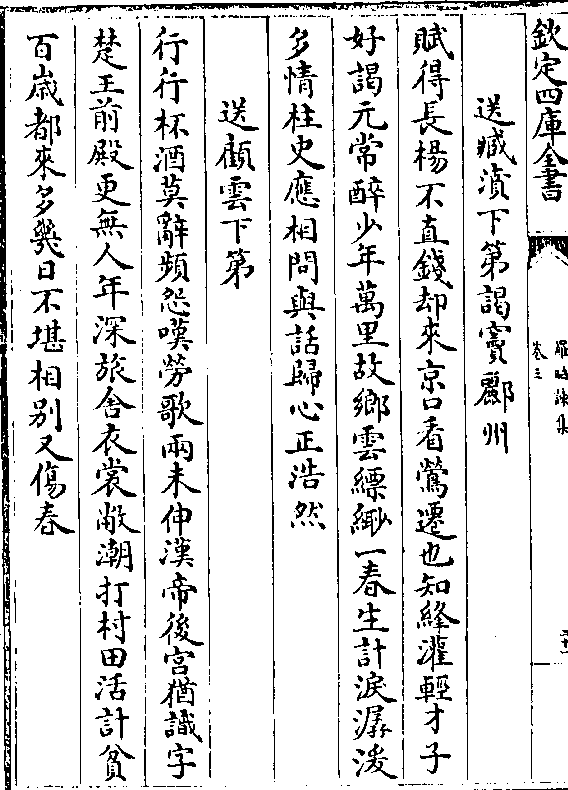 欽定四庫全書
羅昭諫集
卷三
送臧濆下第謁竇鄜州
賦得長楊不直錢却來京口看鶯遷也知絳灌輕才子
好謁元常醉少年萬里故鄉雲縹緲一春生計淚潺湲
多情柱史應相問與話歸心正浩然
送顧雲下第
行行杯酒莫辭頻怨嘆勞歌兩未伸漢帝後宮猶識字
楚王前殿更無人年深旅舍衣裳敝潮打村田活計貧
百歲都來多幾日不堪相别又傷春